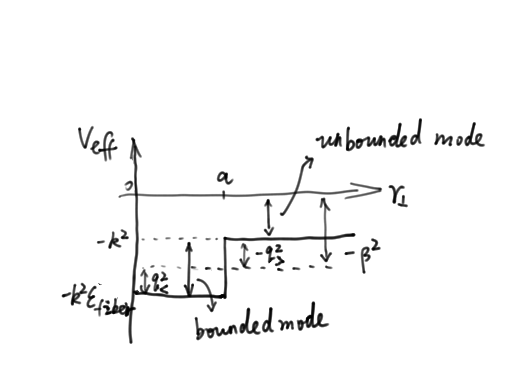 unbounded mode
Veff
0
a
r⊥
-k²
-q²>
-β²
q²<
-k²εfiber
bounded mode